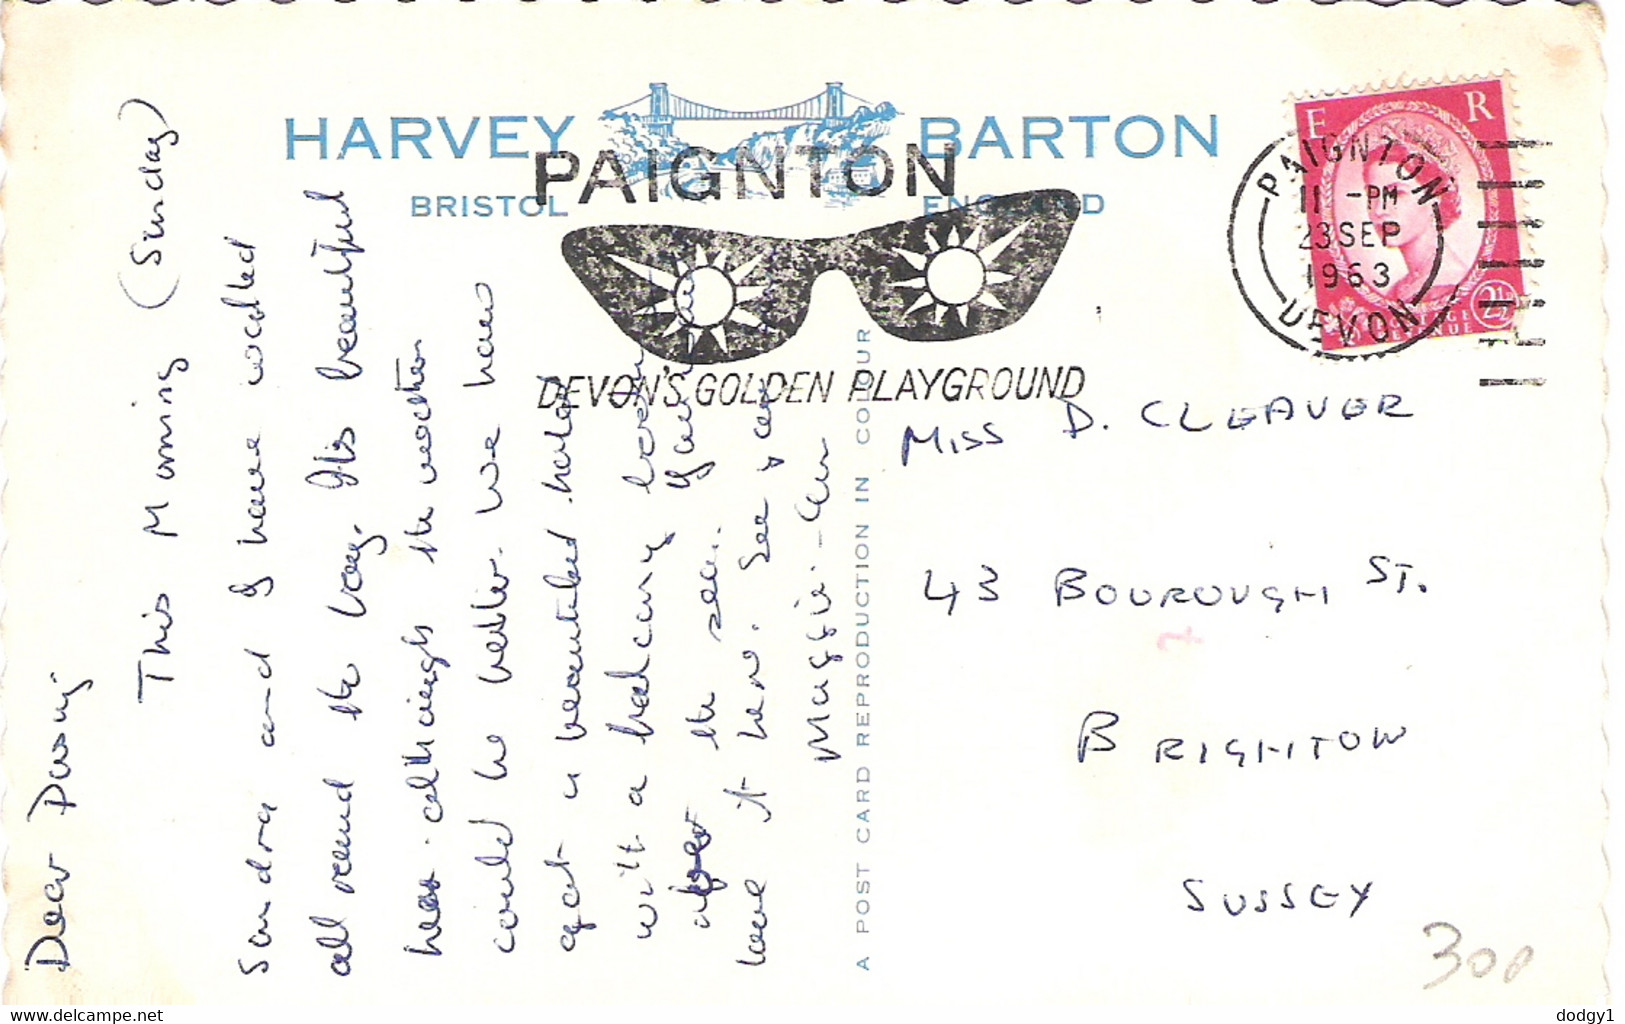 HARVEY BARTON
BRISTOL ENGLAND
PAIGNTON
DEVON'S GOLDEN PLAYGROUND
E R
POSTAGE
REVENUE
2½
PAIGNTON
11 -PM
23 SEP
1963
DEVON
Dear
This Morning (Sunday)
Sandra and I have walked
all round the bay. Its beautiful
here although the weather
could be better. We have
got a beautiful hotel
with a balcony
the sea.
love it here. See
Maggie
A POST CARD REPRODUCTION IN COLOUR
MISS D. CLEAVER
43 BOUROUGH ST.
BRIGHTON
SUSSEX
30p
www.delcampe.net
dodgy1